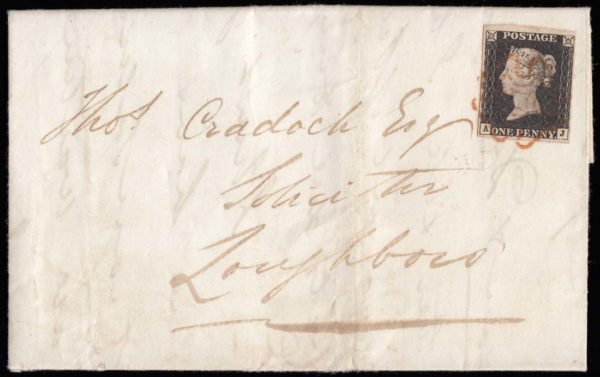 POSTAGE
A ONE PENNY J
Thos Cradock Esq
Soliciter
Loughboro